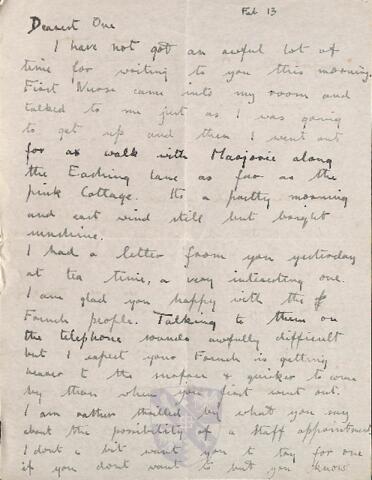 Feb 13
Dearest One
I have not got an awful lot of
time for writing to you this morning.
First Nurse came into my room and
talked to me just as I was going
to get up and then I went out
for a walk with Marjorie along
the Eashing lane as far as the
pink Cottage. Its a pretty morning
and east wind still but bright
sunshine.
I had a letter from you yesterday
at tea time, a very interesting one.
I am glad you happy with the
French people. Talking to them on
the telephone sounds awfully difficult
but I expect your French is getting
nearer to the surface & quicker to come
by than when you first went out.
I am rather thrilled by what you say
about the possibility of a staff appointment
I dont a bit want you to try for one
if you dont want to but you know